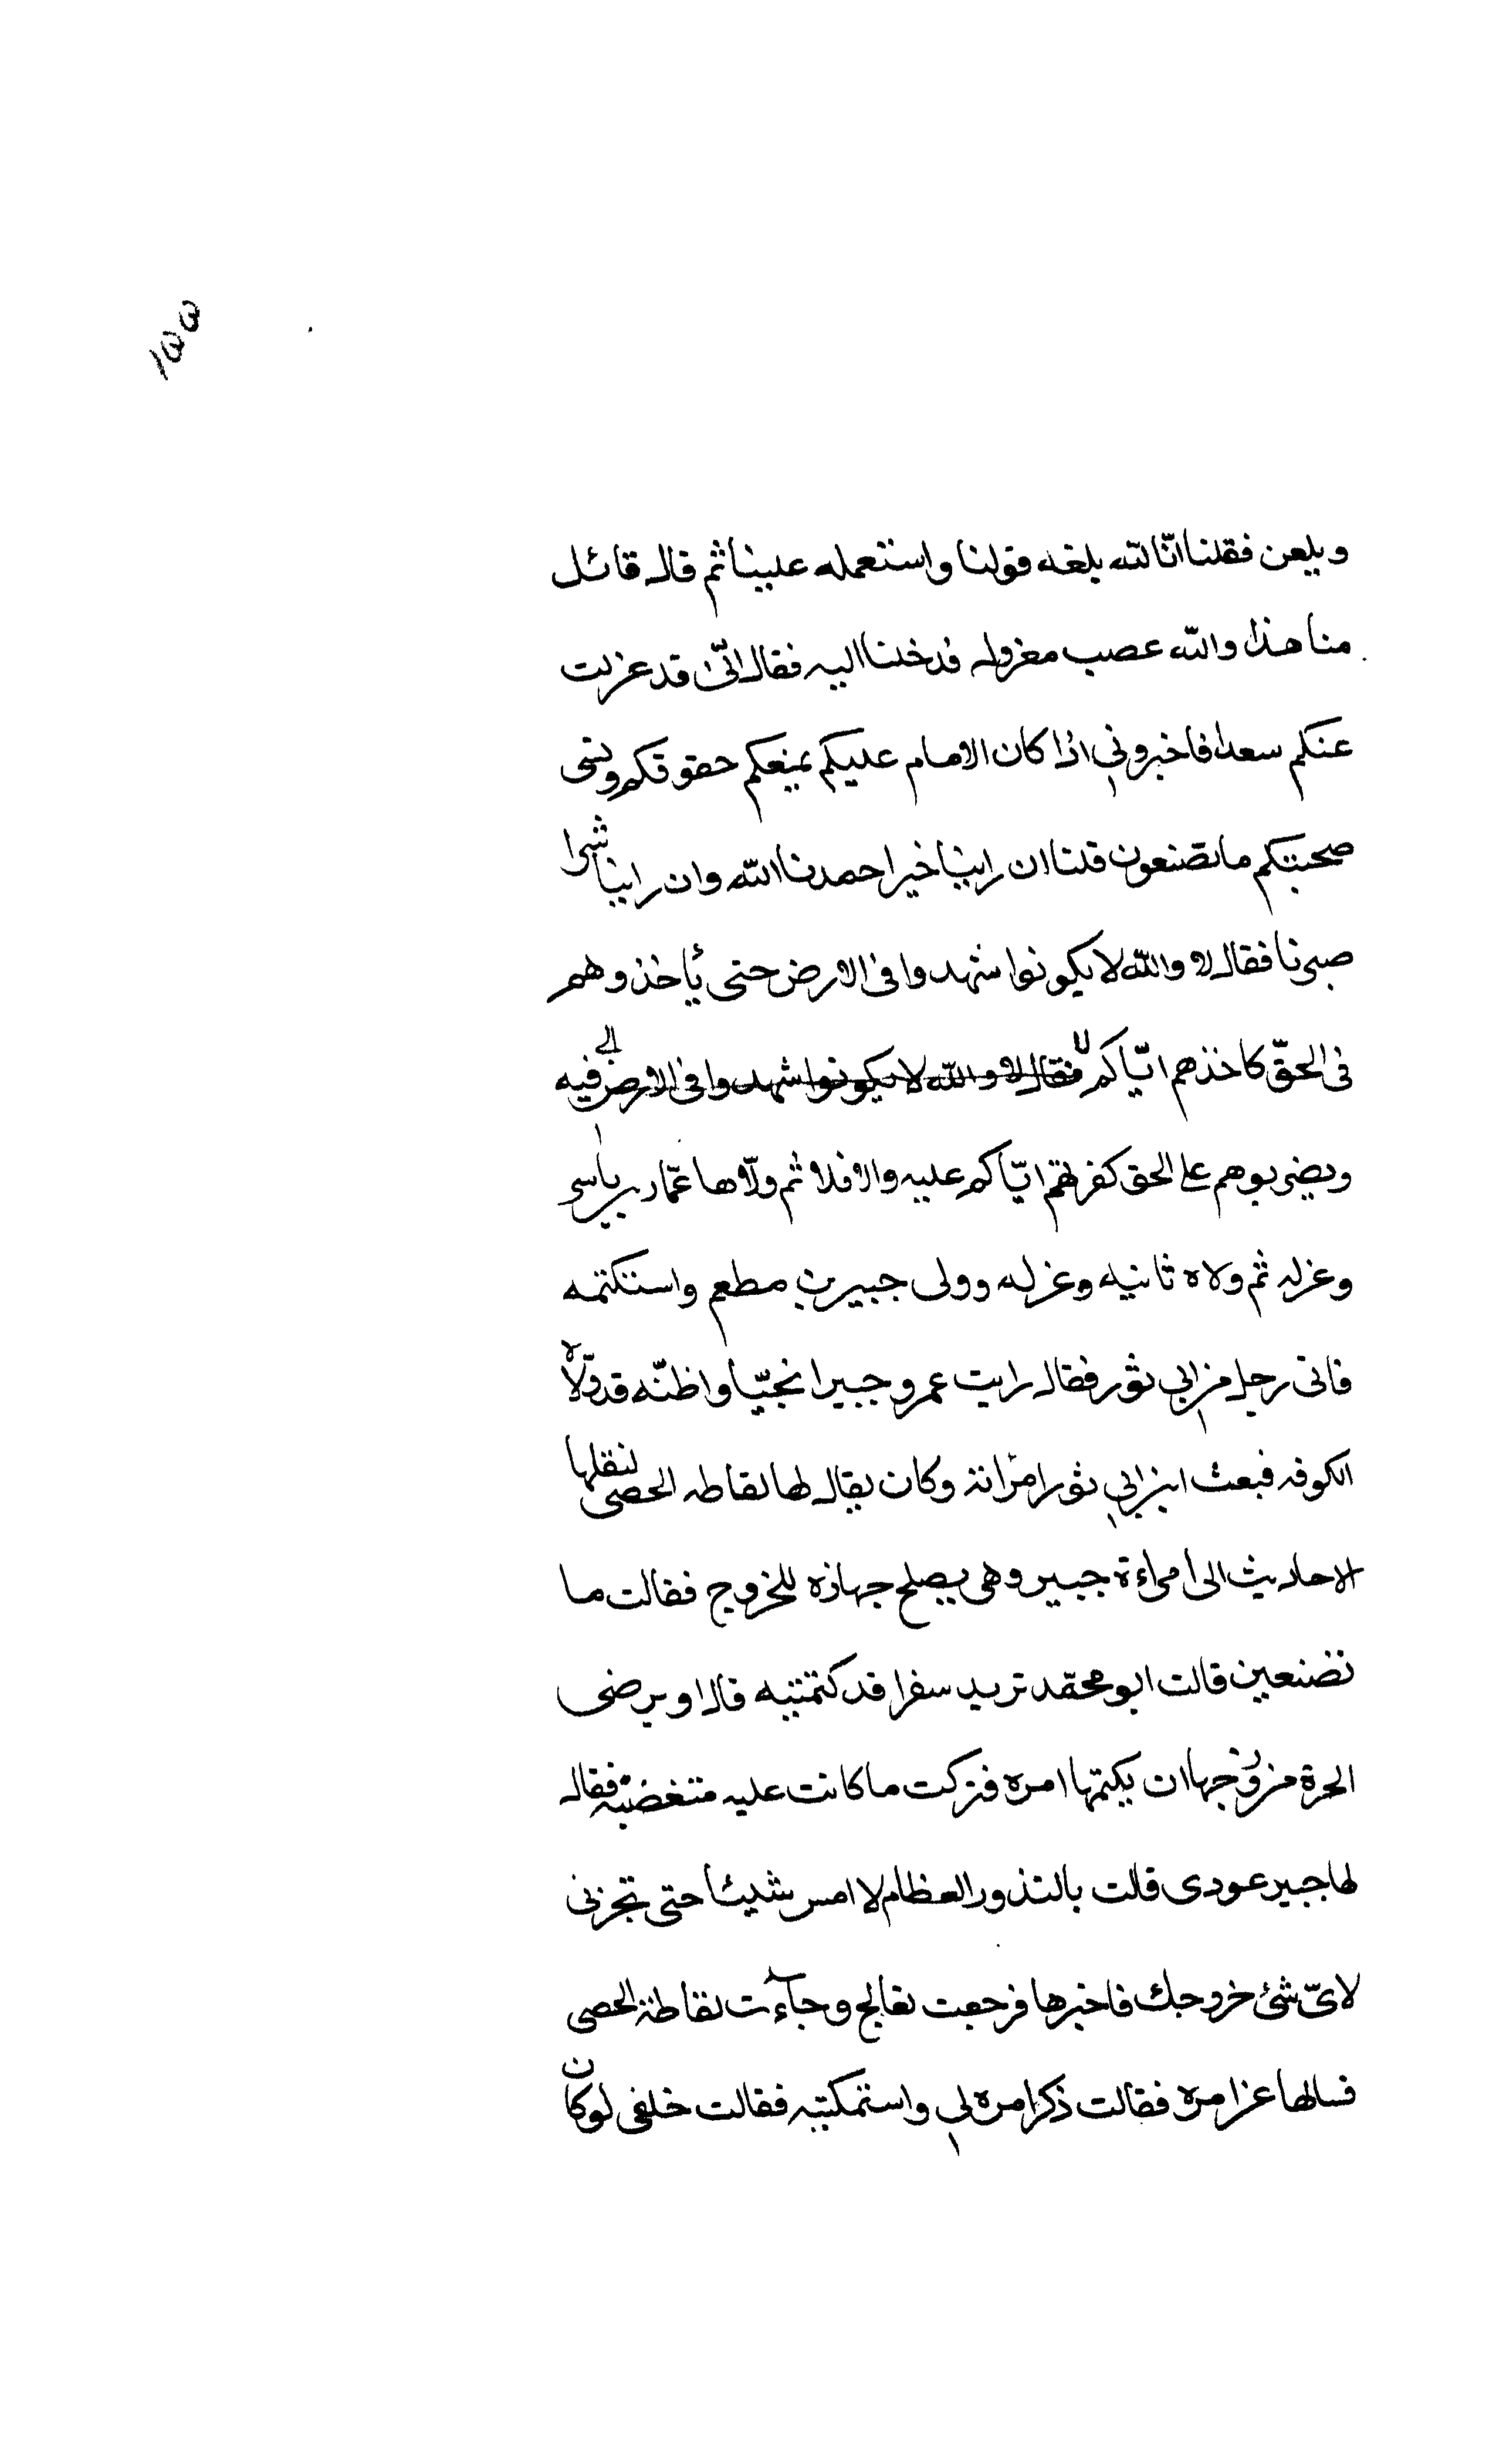 ١٥٥
ويلعن فقلنا انّا لله بلغه قولنا واستعمله علينا ثم قال قائل
منا هذا والله عصب معزوله فدخلنا اليه فقال انّى قد عزلت
عنكم سعدا فاخبروني اذا كان الامام عليكم يمنعكم حقوقكم ويسى
صحبتكم ما تصنعون قلنا ان راينا خيرا حمدنا الله وان راينا شرا
صبرنا فقال لا والله لا يكونوا شهدوا في الارض حتى يأخذوهم
في الحقّ كاخذهم ايّاكم فقال لا والله لا يكونوا شهدوا في الارض فيه
ويضربوهم على الحق كفرقهم ايّاكم عليه والا فلا ثم ولّاها عمّار بن ياسر
وعزله ثم ولاه ثانيه وعزله وولى جبير بن مطعم واستكتمه
فاتى رجل من ابي ثور فقال رايت عمر وجبيرا نجيّا واظنّه قد ولّاه
الكوفه فبعث ابن ابي ثور امراته وكان يقال لها لقاطه الحصى لنقلها
الاحاديث الى امراءة جبير وهى يصلح جهازه للخروج فقالت ما
تصنعين قالت ابو محمّد تريد سفرا قد كتمتيه قال او يرضى
الحرة من زوجها ان يكتمها امره فتركت ما كانت عليه متغضبّه فقال
لها جبير عودى قالت بالنذور العظام لا امس شيئا حتى تخبرنى
لاىّ شئ خروجك فاخبرها فرجعت تعالج وجاءت لقاطة الحصى
فسالها عن امره فقالت ذكر امره لي واستمكتيه فقالت خلفى لو كان